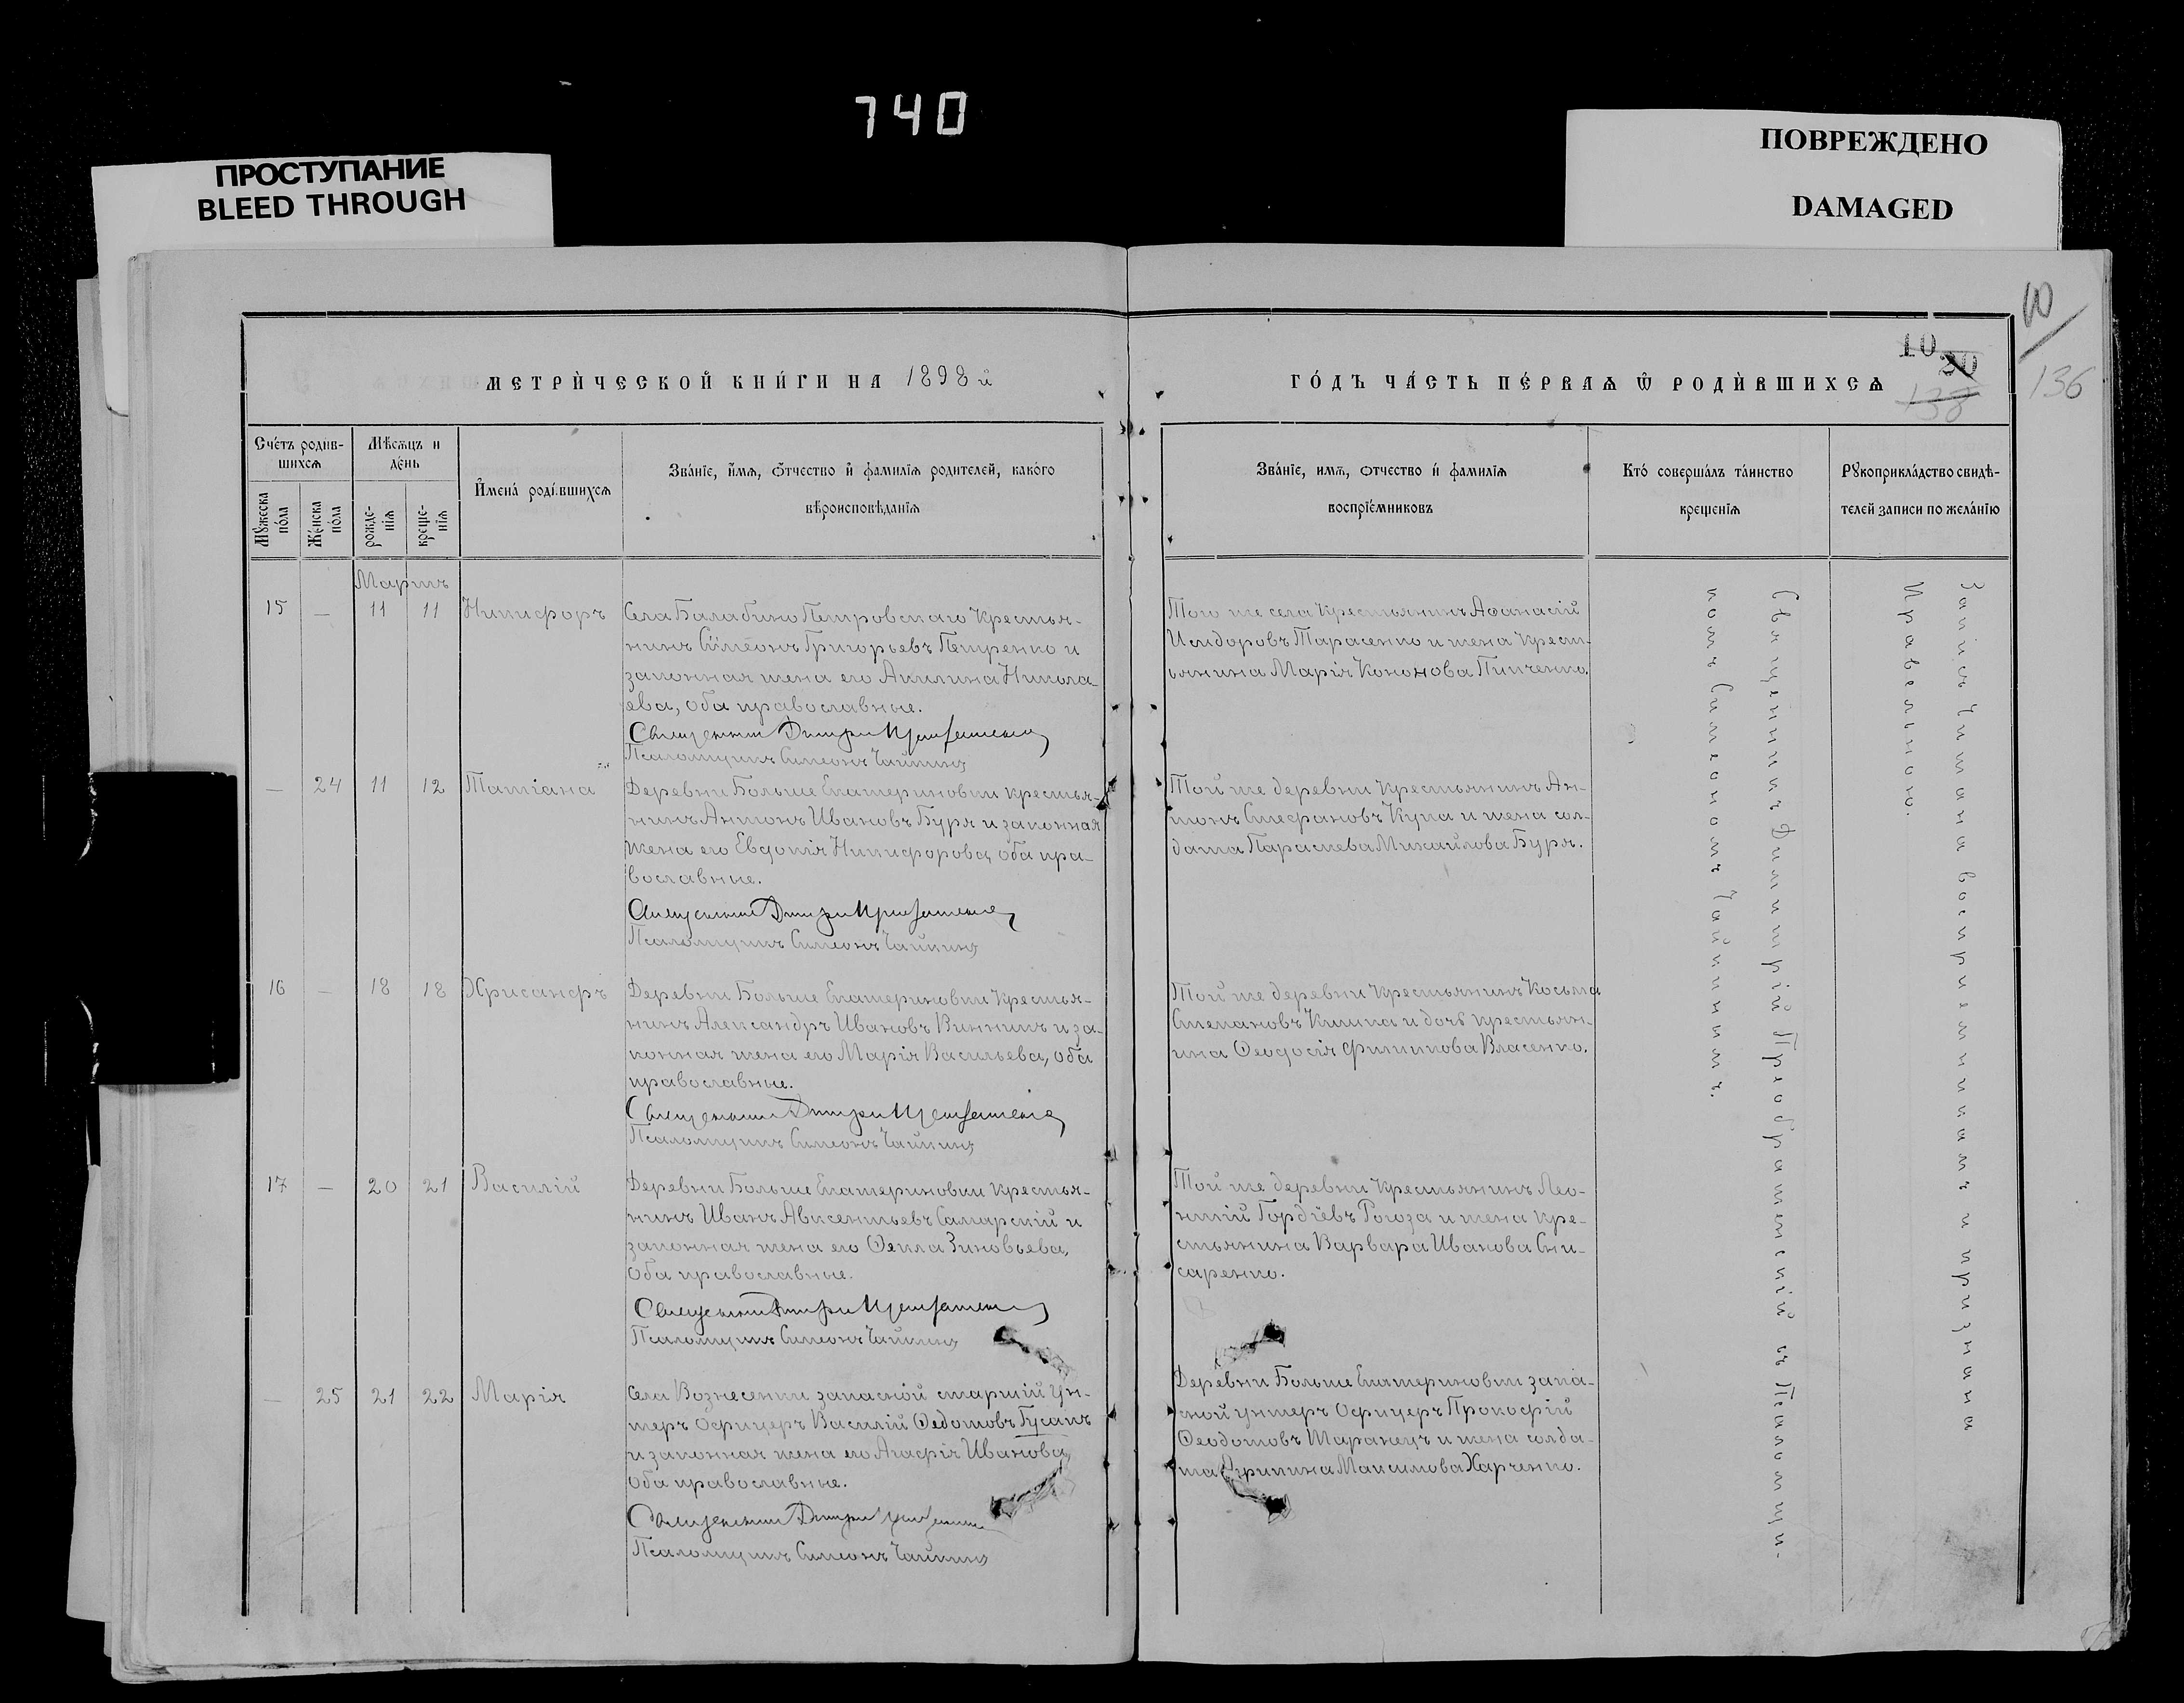 740
ПРОСТУПАНИЕ
BLEED THROUGH
ПОВРЕЖДЕНО
DAMAGED
10
136
10
30
138
МЕТРИ́ЧЕСКОЙ КНИ́ГИ НА 1898й
ГО́ДЪ ЧА́СТЬ ПЕ́РВАѦ Ѿ РОДИ́ВШИХСѦ
Сче́тъ родив-
шихсѧ
Мѣсѧцъ и
де́нь
Мꙋ́жеска
по́ла
Же́нска
по́ла
рожде-
нїѧ
креще-
нїѧ
И҆мена́ роди́вшихсѧ
Зва́нїе, и҆́мѧ, ѻ҆́тчество и҆ фамилїѧ родителей, како́го
вѣроисповѣданїѧ
Зва́нїе, имѧ, ѻтчество и҆ фамилїѧ
воспрїе́мниковъ
Кто́ соверша́лъ та́инство
крещенїѧ
Рꙋкоприкла́дство свидѣ-
телей записи по жела́нїю
Мартъ
15
—
11
11
Никифоръ
Села Балабино Петровскаго Крестья-
нинъ Сѷмеонъ Григорьевъ Петренко и
законная жена его Акилина Никола-
ева, оба православные.
Священникъ Димитрій Преображенскій
Псаломщикъ Симеонъ Чайкинъ
Того же села Крестьянинъ Аѳанасій
Исидоровъ Тарасенко и жена крест-
ьянина Марія Кононова Пипченко.
—
24
11
12
Татіана
Деревни Больше Екатериновки крестья-
нинъ Антонъ Ивановъ Буря и законная
жена его Евдокія Никифорова, оба пра-
вославные.
Священникъ Димитрій Преображенскій
Псаломщикъ Симеонъ Чайкинъ
Той же деревни Крестьянинъ Ан-
тонъ Стефановъ Купа и жена сол-
дата Параскева Михайлова Буря.
16
—
18
18
Хрисанфъ
Деревни Больше Екатериновки Крестья-
нинъ Александръ Ивановъ Винникъ и за-
конная жена его Марія Васильева, оба
православные.
Священникъ Димитрій Преображенскій
Псаломщикъ Симеонъ Чайкинъ
Той же деревни Крестьянинъ Косьма
Степановъ Кишка и дочь крестьян-
ина Ѳеодосія Филиппова Власенко.
17
—
20
21
Василій
Деревни Больше Екатериновки Крестья-
нинъ Иванъ Авксентьевъ Самарскій и
законная жена его Ѳекла Зиновьева,
оба православные.
Священникъ Димитрій Преображенскій
Псаломщикъ Симеонъ Чайкинъ
Той же деревни Крестьянинъ Лео-
нтій Гордіевъ Рогоза и жена кре-
стьянина Варвара Иванова Сни-
саренко.
—
25
21
22
Марія
Села Вознесенки запасной старшій ун-
теръ офицеръ Василій Ѳедотовъ Гусакъ
и законная жена его Агафія Иванова,
оба православные.
Священникъ Димитрій Преображенскій
Псаломщикъ Симеонъ Чайкинъ
Деревни Больше Екатериновки запа-
сной унтеръ Офицеръ Прокофій
Ѳеодотовъ Таранецъ и жена солда-
та Максимова Харченко.
Священникъ Димитрій Преображенскій съ Псаломщи-
комъ Симеономъ Чайкинымъ.
Запись читана воспріемникамъ и признана
Правельною.